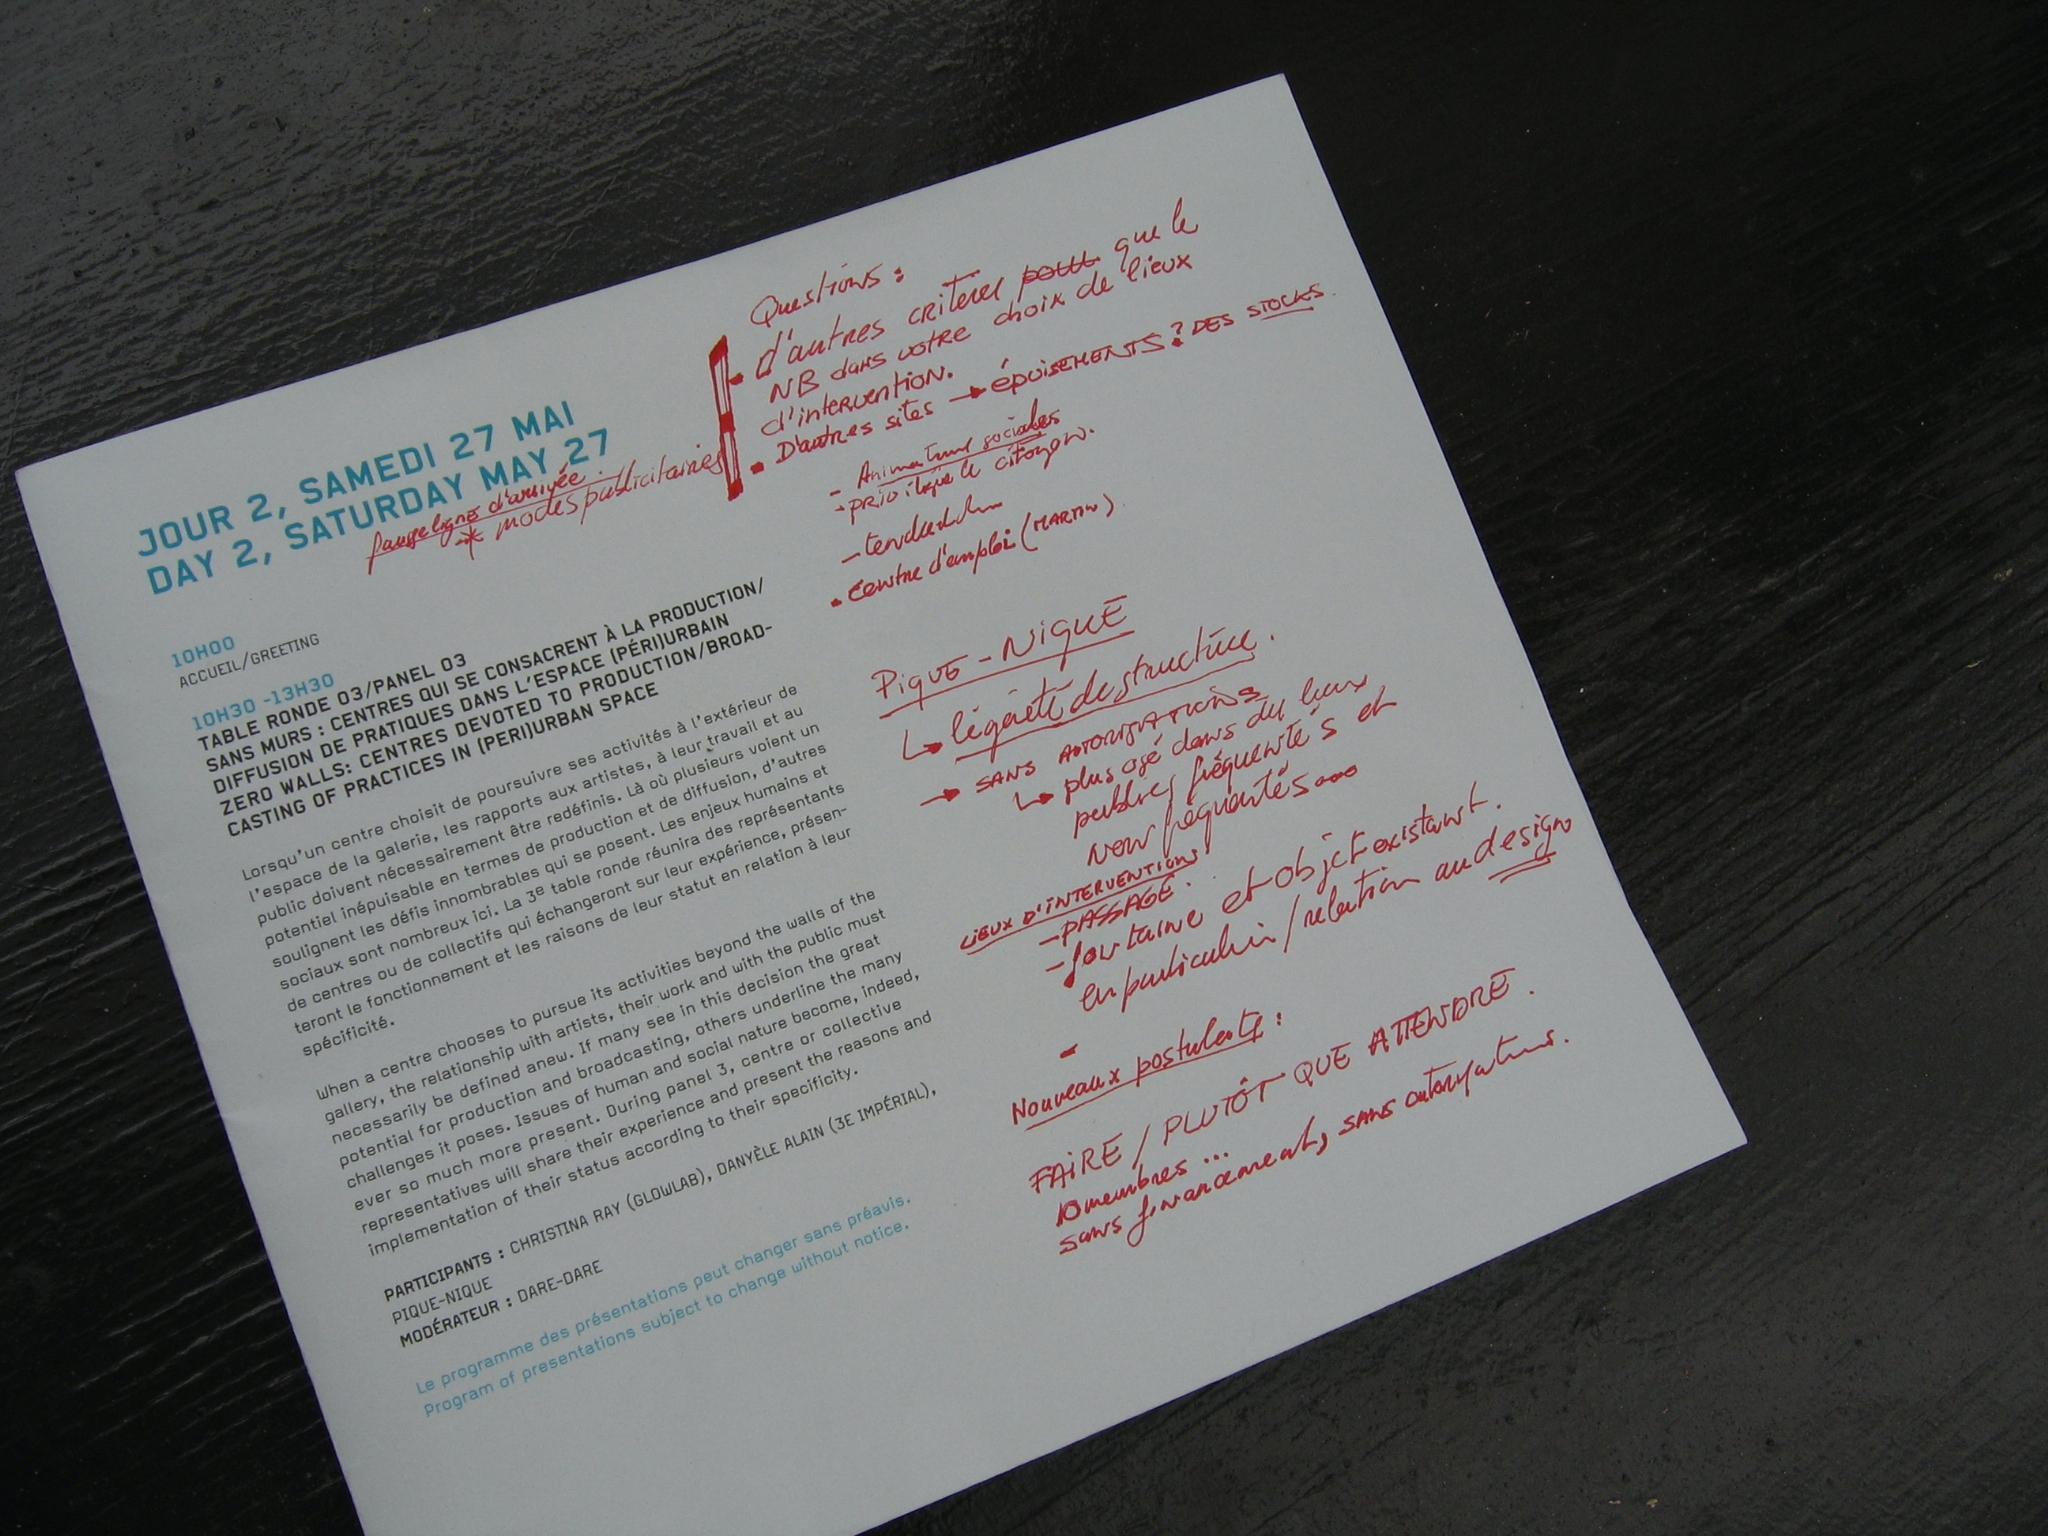 JOUR 2, SAMEDI 27 MAI
DAY 2, SATURDAY MAY 27
fausse lignes d'arrivée
* modes publicitaires
10H00
ACCUEIL/GREETING
10H30 -13H30
TABLE RONDE 03/PANEL 03
SANS MURS : CENTRES QUI SE CONSACRENT À LA PRODUCTION/
DIFFUSION DE PRATIQUES DANS L'ESPACE (PÉRI)URBAIN
ZERO WALLS: CENTRES DEVOTED TO PRODUCTION/BROAD-
CASTING OF PRACTICES IN (PERI)URBAN SPACE
Lorsqu'un centre choisit de poursuivre ses activités à l'extérieur de
l'espace de la galerie, les rapports aux artistes, à leur travail et au
public doivent nécessairement être redéfinis. Là où plusieurs voient un
potentiel inépuisable en termes de production et de diffusion, d'autres
soulignent les défis innombrables qui se posent. Les enjeux humains et
sociaux sont nombreux ici. La 3e table ronde réunira des représentants
de centres ou de collectifs qui échangeront sur leur expérience, présen-
teront le fonctionnement et les raisons de leur statut en relation à leur
spécificité.
When a centre chooses to pursue its activities beyond the walls of the
gallery, the relationship with artists, their work and with the public must
necessarily be defined anew. If many see in this decision the great
potential for production and broadcasting, others underline the many
challenges it poses. Issues of human and social nature become, indeed,
ever so much more present. During panel 3, centre or collective
representatives will share their experience and present the reasons and
implementation of their status according to their specificity.
PARTICIPANTS : CHRISTINA RAY (GLOWLAB), DANYÈLE ALAIN (3E IMPÉRIAL),
PIQUE-NIQUE
MODÉRATEUR : DARE-DARE
Le programme des présentations peut changer sans préavis.
Program of presentations subject to change without notice.
Questions :
• d'autres critères pour que le
NB dans votre choix de lieux
d'intervention.
• D'autres sites → épuisements? DES STOCKS.
- Animateurs sociales
- privilégie le citoyen.
-
• centre d'emploi (MARTIN)
PIQUE-NIQUE
↳ légèreté de structure.
→ SANS AUTORISATIONS
↳ plus osé dans des lieux
publics fréquentés et
NON fréquentés...
LIEUX D'INTERVENTIONS
- PASSAGE.
- fontaine et objet existant.
en particulier / relation au design
-
Nouveaux postulats :
FAIRE / PLUTÔT QUE ATTENDRE.
10 membres ...
sans financement, sans autorisations.